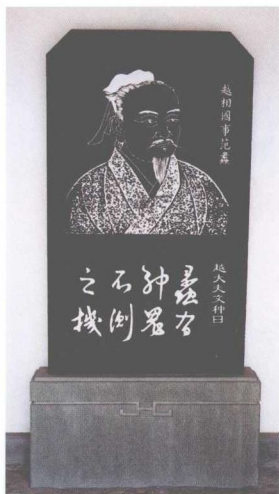 越相國事范蠡
越大夫文种曰
蠡有
神鬼
不測
之機